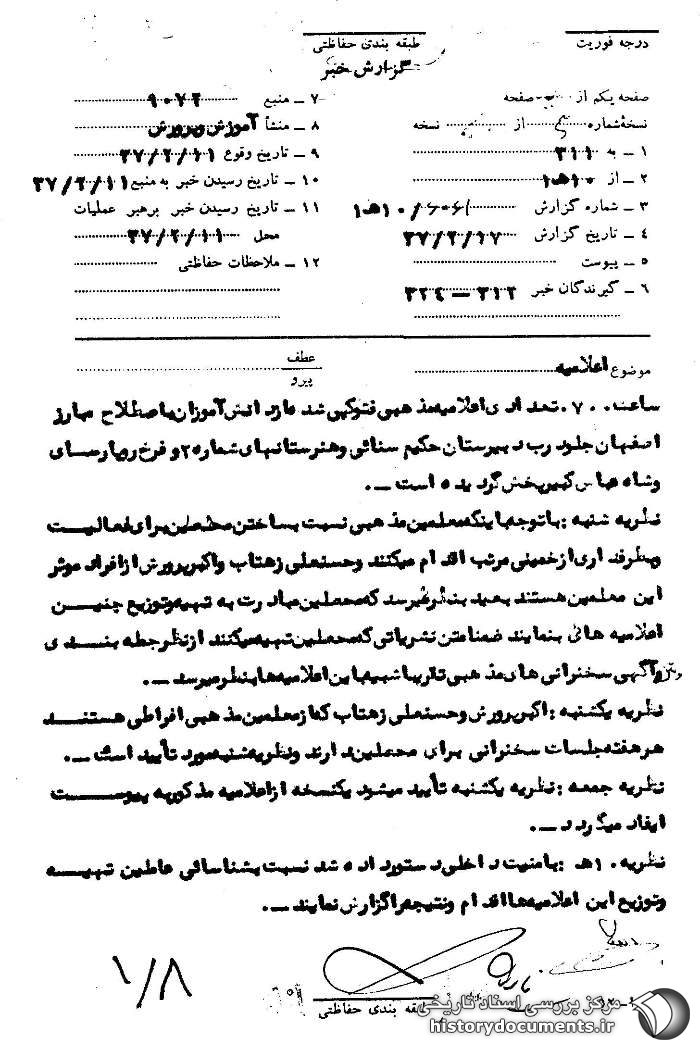 درجه فوریت
طبقه بندی حفاظتی
گزارش خبر
صفحه یکم از صفحه
نسخه شماره از نسخه
۱ ـ به ۳۱۱
۲ ـ از ۱۰ه‍
۳ ـ شماره گزارش
۴ ـ تاریخ گزارش ۳۷/۲/۱۷
۵ ـ پیوست
۶ ـ گیرندگان خبر ۳۱۲ ـ ۳۲۴
۷ ـ منبع ۹۰۷۲
۸ ـ منشأ آموزش و پرورش
۹ ـ تاریخ وقوع ۳۷/۲/۱۱
۱۰ ـ تاریخ رسیدن خبر به منبع ۳۷/۲/۱۱
۱۱ ـ تاریخ رسیدن خبر برهبر عملیات
محل ۳۷/۲/۱۱
۱۲ ـ ملاحظات حفاظتی
موضوع اعلامیه
عطف
پیرو
ساعت ۰۷۰۰ تعدادی اعلامیه مذهبی فتوکپی شده از دانش آموزان باصطلاح مبارز
اصفهان جلو درب دبیرستان حکیم سنائی و هنرستانهای شماره ۲ و فرخ رو پارسای
و شاه عباس کبیر پخش گردیده است ـ.
نظریه شنبه : باتوجه باینکه معلمین مذهبی نسبت بساختن محصلین برای فعالیت
و طرفداری از خمینی مرتب اقدام میکنند و حسنعلی زهتاب و اکبر پرورش از افراد موثر
این معلمین هستند بعید بنظر نمیرسد که محصلین مبادرت به تهیه و توزیع چنین
اعلامیه هائی بنمایند ضمنا متن نشریاتی که محصلین تهیه میکنند از نظر جمله بندی
و آگهی سخنرانی های مذهبی تقریبا شبیه باین اعلامیه ها بنظر میرسد ـ.
نظریه یکشنبه : اکبر پرورش و حسنعلی زهتاب که از معلمین مذهبی افراطی هستند
هر هفته جلسات سخنرانی برای محصلین دارند و نظریه شنبه مورد تأیید است ـ.
نظریه جمعه : نظریه یکشنبه تأیید میشود یکنسخه از اعلامیه مذکور به پیوست
ایفاد میگردد ـ.
نظریه ۱۰ه‍ : بامنیت داخلی دستور داده شد نسبت بشناسائی عاملین تهیه
و توزیع این اعلامیه ها اقدام و نتیجه را گزارش نمایند ـ.
۱/۸
طبقه بندی حفاظتی
مرکز بررسی اسناد تاریخی
historydocuments.ir